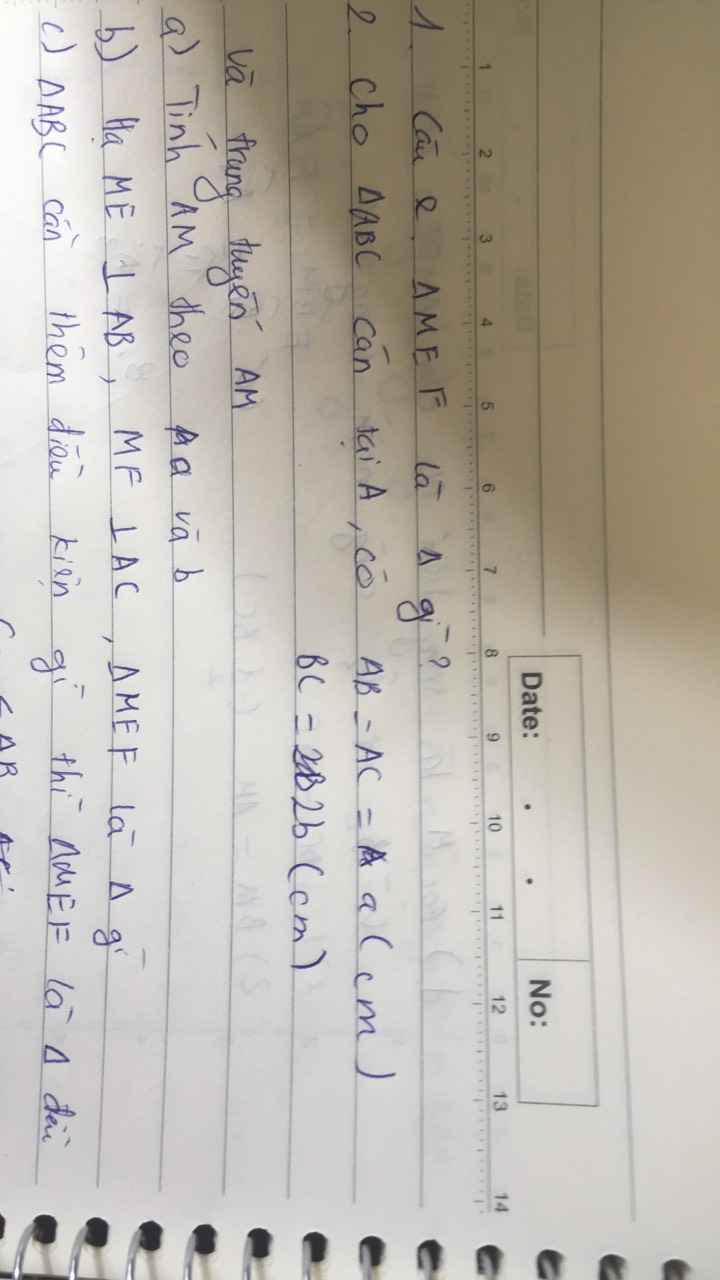 Date: . . No:
1 2 3 4 5 6 7 8 9 10 11 12 13 14
1. Câu 2. ΔMEF là Δ gì?
2. Cho ΔABC cân tại A, có AB = AC = a (cm)
BC = 2b (cm)
và trung tuyến AM
a) Tính AM theo a và b
b) Hạ ME ⊥ AB, MF ⊥ AC, ΔMEF là Δ gì
c) ΔABC cần thêm điều kiện gì thì ΔMEF là Δ đều